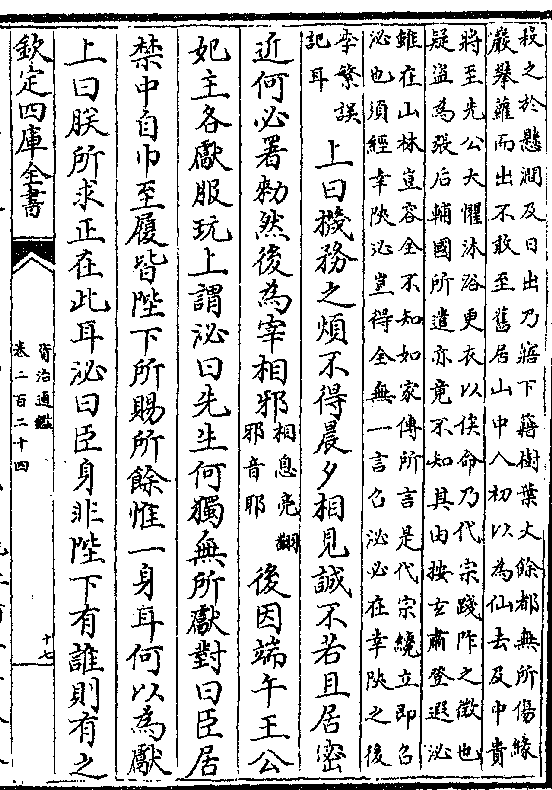 投之於懸澗及日出乃寤下籍樹葉丈餘都無所傷緣
巖攀蘿而出不敢至舊居山中人初以為仙去及中貴
將至先公大懼沐浴更衣以俟命乃代宗踐阼之徵也
疑盗為張后輔國所遣亦竟不知其由按玄肅登遐泌
雖在山林豈容全不知如家傳所言是代宗纔立即召
泌也須經幸陜泌豈得全無一言召泌必在幸陜之後
李繁誤
記耳
上曰機務之煩不得晨夕相見誠不若且居密
近何必署勑然後為宰相邪
相息亮翻
邪音耶
後因端午王公
妃主各獻服玩上謂泌曰先生何獨無所獻對曰臣居
禁中自巾至履皆陛下所賜所餘惟一身耳何以為獻
上曰朕所求正在此耳泌曰臣身非陛下有誰則有之
欽定四庫全書
資治通鑑
卷二百二十四
十七